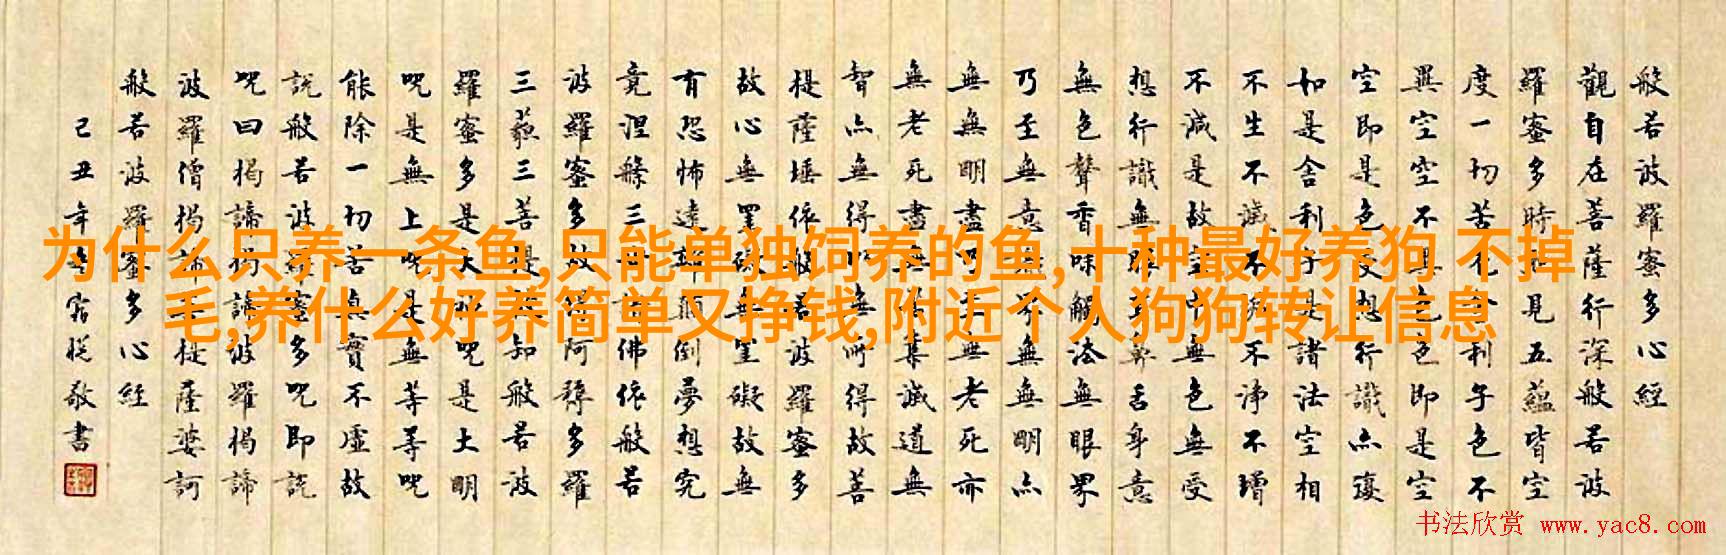 般若波羅蜜多心經
觀自在菩薩行深般若波
羅蜜多時照見五蘊皆空
度一切苦厄舍利子色不
異空空不異色色即是空
空即是色受想行識亦復
如是舍利子是諸法空相
不生不滅不垢不淨不增
不減是故空中無色無受
想行識無眼耳鼻舌身意
無色聲香味觸法無眼界
乃至無意識界無無明亦
無無明盡乃至無老死亦
無老死盡無苦集滅道無
智亦無得以無所得故菩
提薩埵依般若波羅蜜多
故心無罣礙無罣礙故無
有恐怖遠離顛倒夢想究
竟涅槃三世諸佛依般若
波羅蜜多故得阿耨多羅
三藐三菩提故知般若波
羅蜜多是大神呪是大明
呪是無上呪是無等等呪
能除一切苦真實不虛故
說般若波羅蜜多呪即說
呪曰揭諦揭諦波羅揭諦
波羅僧揭諦菩提薩婆訶
般若波羅蜜多心經
己丑年敬書
为什么只养一条鱼,只能单独饲养的鱼,十种最好养狗 不掉
毛,养什么好养简单又挣钱,附近个人狗狗转让信息
书法欣赏 www.yac8.com